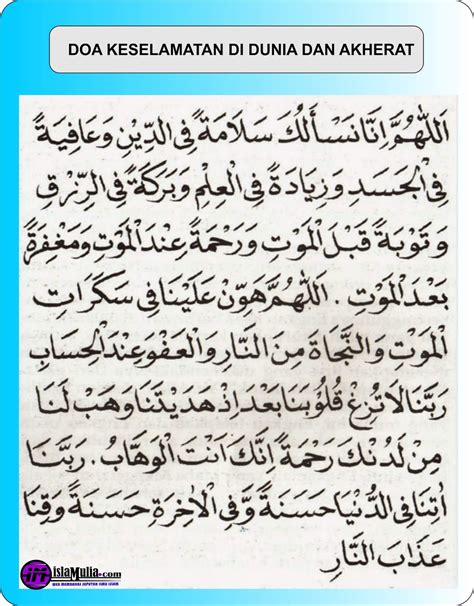 DOA KESELAMATAN DI DUNIA DAN AKHERAT
اَللّٰهُمَّ اِنَّا نَسْأَلُكَ سَلَامَةً فِى الدِّيْنِ وَعَافِيَةً
فِى الْجَسَدِ وَزِيَادَةً فِى الْعِلْمِ وَبَرَكَةً فِى الرِّزْقِ
وَتَوْبَةً قَبْلَ الْمَوْتِ وَرَحْمَةً عِنْدَ الْمَوْتِ وَمَغْفِرَةً
بَعْدَ الْمَوْتِ . اَللّٰهُمَّ هَوِّنْ عَلَيْنَا فِى سَكَرَاتِ
الْمَوْتِ وَالنَّجَاةَ مِنَ النَّارِ وَالْعَفْوَ عِنْدَ الْحِسَابِ
رَبَّنَا لَا تُزِغْ قُلُوْبَنَا بَعْدَ اِذْ هَدَيْتَنَا وَهَبْ لَنَا
مِنْ لَدُنْكَ رَحْمَةً اِنَّكَ اَنْتَ الْوَهَّابُ . رَبَّنَا
اٰتِنَا فِى الدُّنْيَا حَسَنَةً وَّفِى الْاٰخِرَةِ حَسَنَةً وَّقِنَا
عَذَابَ النَّارِ
islaMulia.com